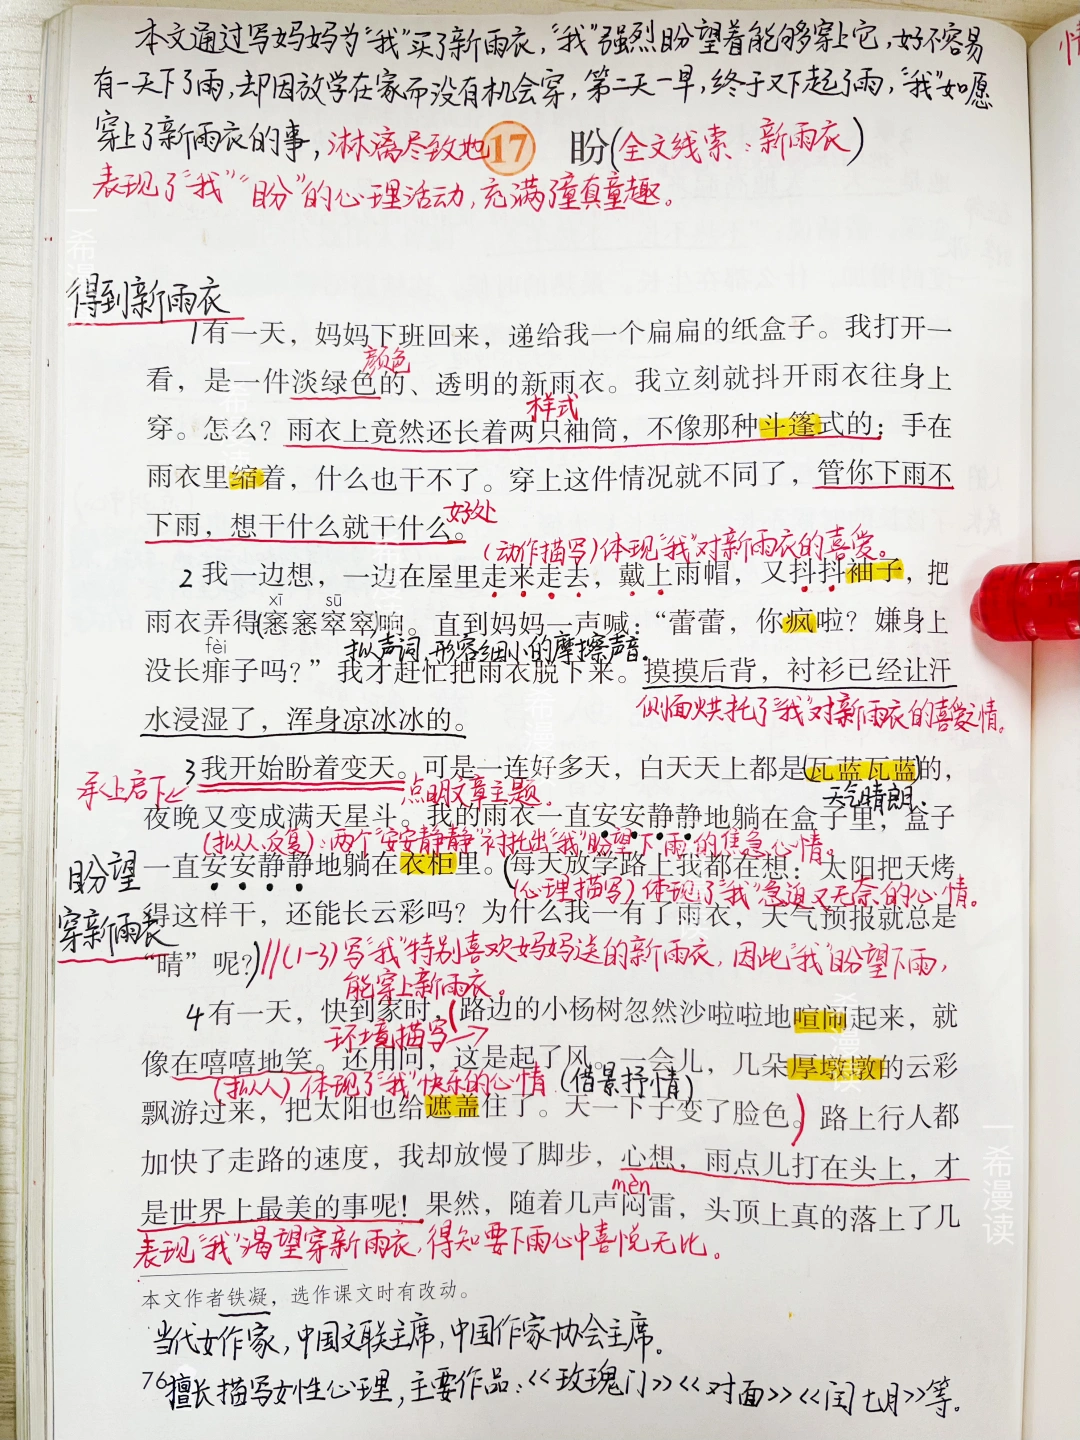 本文通过写妈妈为“我”买了新雨衣，“我”强烈盼望着能够穿上它，好不容易
有一天下了雨，却因放学在家而没有机会穿，第二天一早，终于又下起了雨，“我”如愿
穿上了新雨衣的事，淋漓尽致地 17 盼（全文线索：新雨衣）
表现了“我”“盼”的心理活动，充满了童真童趣。
得到新雨衣
1有一天，妈妈下班回来，递给我一个扁扁的纸盒子。我打开一
颜色
看，是一件淡绿色的、透明的新雨衣。我立刻就抖开雨衣往身上
样式
穿。怎么？雨衣上竟然还长着两只袖筒，不像那种斗篷式的：手在
雨衣里缩着，什么也干不了。穿上这件情况就不同了，管你下雨不
下雨，想干什么就干什么。好处
（动作描写）体现“我”对新雨衣的喜爱。
2 我一边想，一边在屋里走来走去，戴上雨帽，又抖抖袖子，把
xī sū
雨衣弄得(窸窸窣窣)响。直到妈妈一声喊：“蕾蕾，你疯啦？嫌身上
fèi
拟声词，形容细小的摩擦声音。
没长痱子吗？”我才赶忙把雨衣脱下来。摸摸后背，衬衫已经让汗
侧面烘托了“我”对新雨衣的喜爱之情。
水浸湿了，浑身凉冰冰的。
承上启下
3 我开始盼着变天。可是一连好多天，白天天上都是(瓦蓝瓦蓝)的，
点明文章主题。
天气晴朗.
夜晚又变成满天星斗。我的雨衣一直安安静静地躺在盒子里，盒子
（拟人、反复）：两个“安安静静”衬托出“我”盼望下雨的焦急心情。
盼望
穿新雨衣
一直安安静静地躺在衣柜里。(每天放学路上我都在想：太阳把天烤
（心理描写）体现了“我”急迫又无奈的心情。
得这样干，还能长云彩吗？为什么我一有了雨衣，天气预报就总是
“晴”呢？)//(1-3)写“我”特别喜欢妈妈送的新雨衣，因此“我”盼望下雨，
能穿上新雨衣。
4 有一天，快到家时，(路边的小杨树忽然沙啦啦地喧闹起来，就
环境描写→
像在嘻嘻地笑。还用问，这是起了风。一会儿，几朵厚墩墩的云彩
（拟人）体现了“我”快乐的心情（借景抒情）
飘游过来，把太阳也给遮盖住了。天一下子变了脸色。)路上行人都
加快了走路的速度，我却放慢了脚步，心想，雨点儿打在头上，才
mèn
是世界上最美的事呢！果然，随着几声闷雷，头顶上真的落上了几
表现“我”渴望穿新雨衣，得知要下雨心中喜悦无比。
本文作者铁凝，选作课文时有改动。
当代女作家，中国文联主席，中国作家协会主席。
76 擅长描写女性心理，主要作品：《玫瑰门》《对面》《闰七月》等。
一希漫读